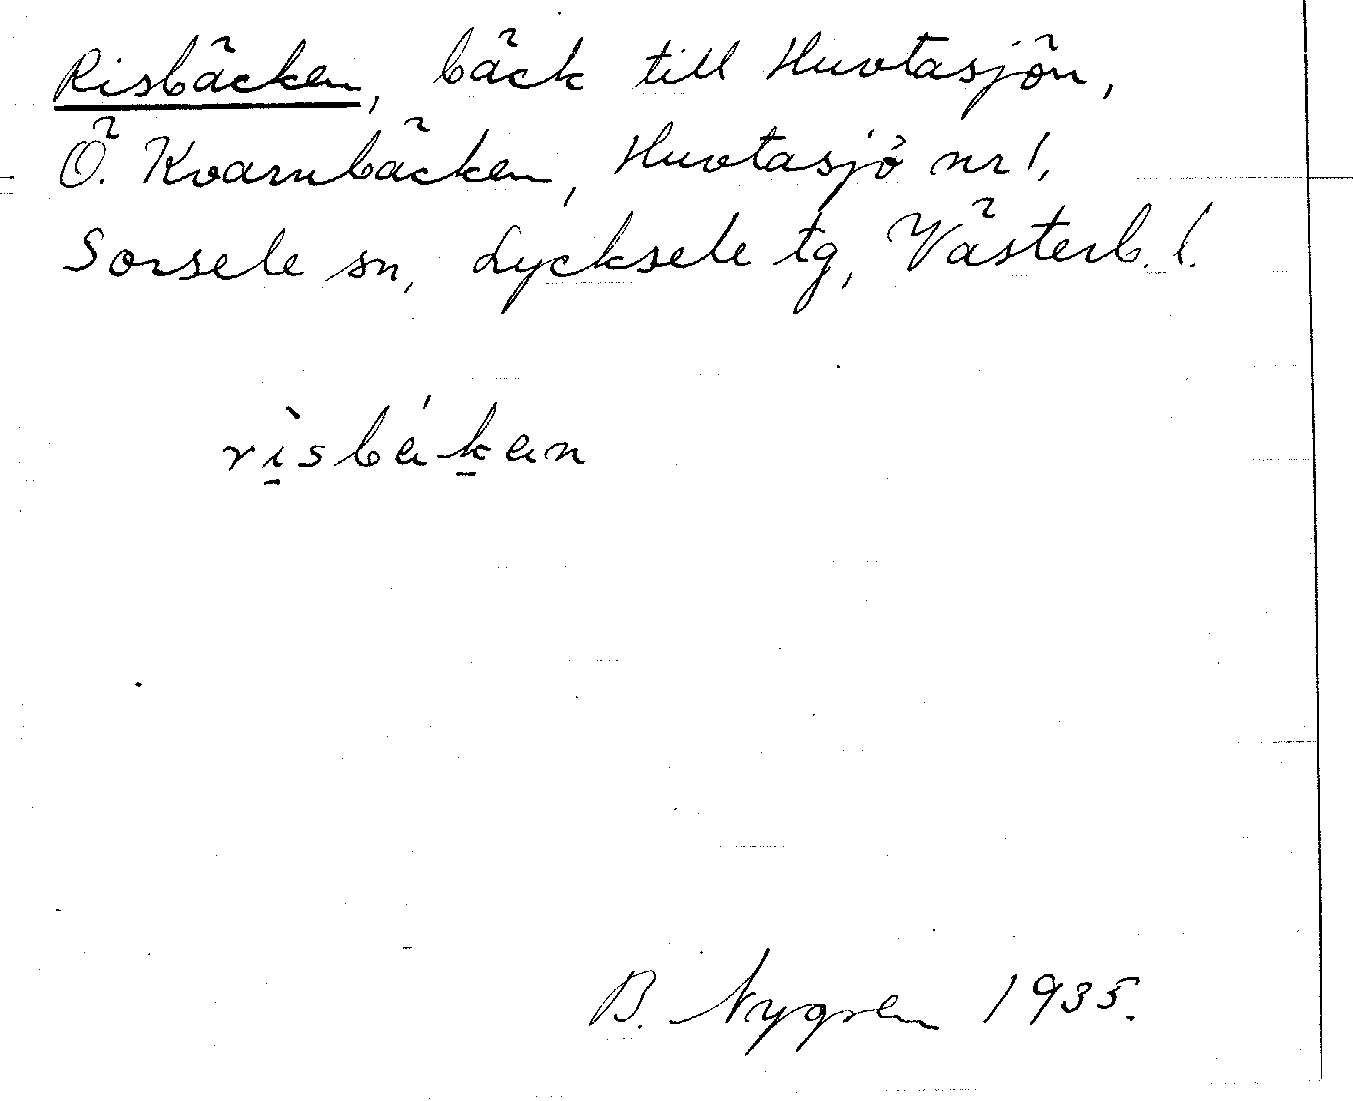 Risbäcken, bäck till Huvtasjön,
Ö. Kvarnbäcken, Huvtasjö nr 1,
Sorsele sn, Lycksele tg, Västerb. l.
rì̱sbá̱ḵan
B. Nygren 1935.